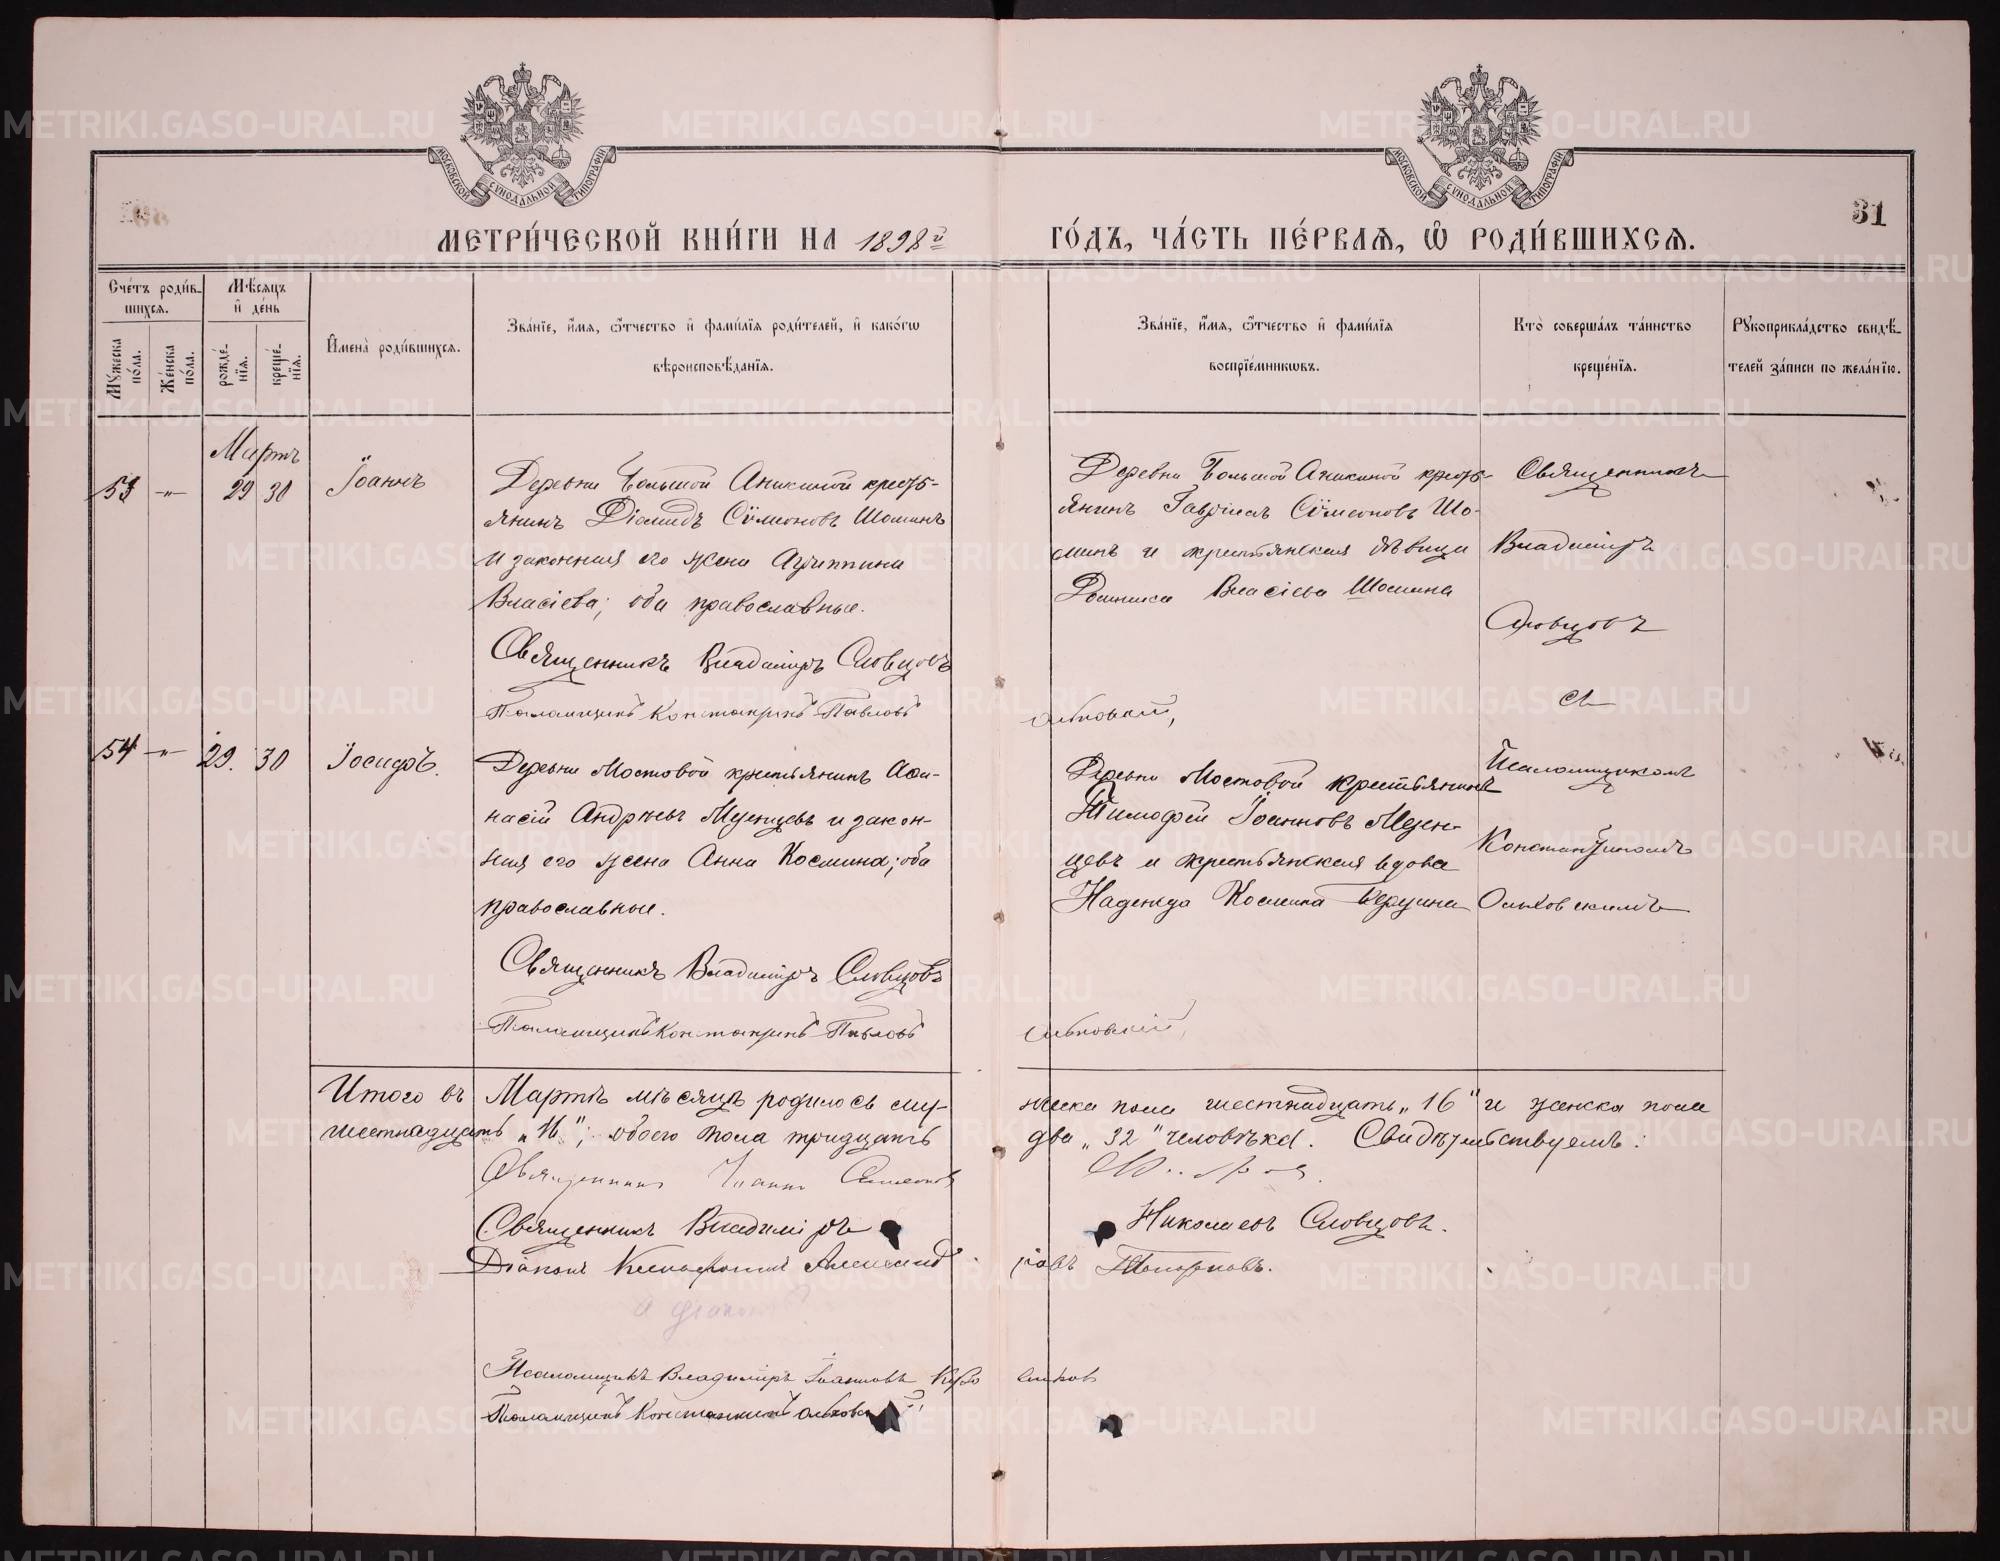 МОСКОВСКОЙ СѴНОДАЛЬНОЙ ТИПОГРАФІИ
МОСКОВСКОЙ СѴНОДАЛЬНОЙ ТИПОГРАФІИ
31
МЕТРИ́ЧЕСКОЙ КНИ́ГИ НА 1898й
ГО́ДЪ, ЧА́СТЬ ПЕ́РВАѦ, Ѡ҆ РОДИ́ВШИХСѦ.
Сче́тъ роди́в-
шихсѧ.
Мѣ́сѧцъ
и҆ де́нь
Мꙋ́жеска по́ла.
Же́нска по́ла.
рожде́-
нїѧ.
креще́-
нїѧ.
И҆мена̀ роди́вшихсѧ.
Зва́нїе, и҆́мѧ, ѻ҆́тчество и҆ фами́лїѧ роди́телей, и҆ како́гѡ
вѣроисповѣ́данїѧ.
Зва́нїе, и҆́мѧ, ѻ҆́тчество и҆ фами́лїѧ
воспрїе́мникѡвъ.
Кто̀ соверша́лъ та́инство
креще́нїѧ.
Рꙋкоприкла́дство свидѣ́-
телей за́писи по жела́нїю.
Мартъ
53 -"- 29 30 Іоаннъ
Деревни Большой Аникиной кресть-
янинъ Діомидъ Сѵмеоновъ Шоминъ
и законная его жена Агриппина
Власіева; оба православные.
Священникъ Владиміръ Словцовъ
Псаломщикъ Константинъ Павловъ
Деревни Большой Аникиной кресть-
янинъ Гавріилъ Сѵмеоновъ Шо-
минъ и крестьянская дѣвица
Домника Власіева Шомина
Ольховскій,
Священникъ
Владиміръ
Словцовъ
съ
54 -"- 29. 30 Іосифъ.
Деревни Мостовой крестьянинъ Аѳа-
насій Андреевъ Мезенцевъ и закон-
ная его жена Анна Космина; оба
православные.
Священникъ Владиміръ Словцовъ
Псаломщикъ Константинъ Павловъ
Деревни Мостовой крестьянинъ
Тимофей Іоанновъ Мезен-
цевъ и крестьянская вдова
Надежда Космина
Ольховскій,
Псаломщикомъ
Константиномъ
Ольховскимъ
Итого въ Мартѣ мѣсяцѣ родилось му-
жска пола шестнадцать „16" и женска пола
шестнадцать „16"; обоего пола тридцать
два „32" человѣка. Свидѣтельствуемъ:
Священникъ Іоаннъ
Священникъ Владиміръ Николаевъ Словцовъ.
Діаконъ Ксенофонтъ Александ
ровъ Топорковъ.
Псаломщикъ Владиміръ Іоанновъ
Псаломщикъ Константинъ Ольховскій,
METRIKI.GASO-URAL.RU